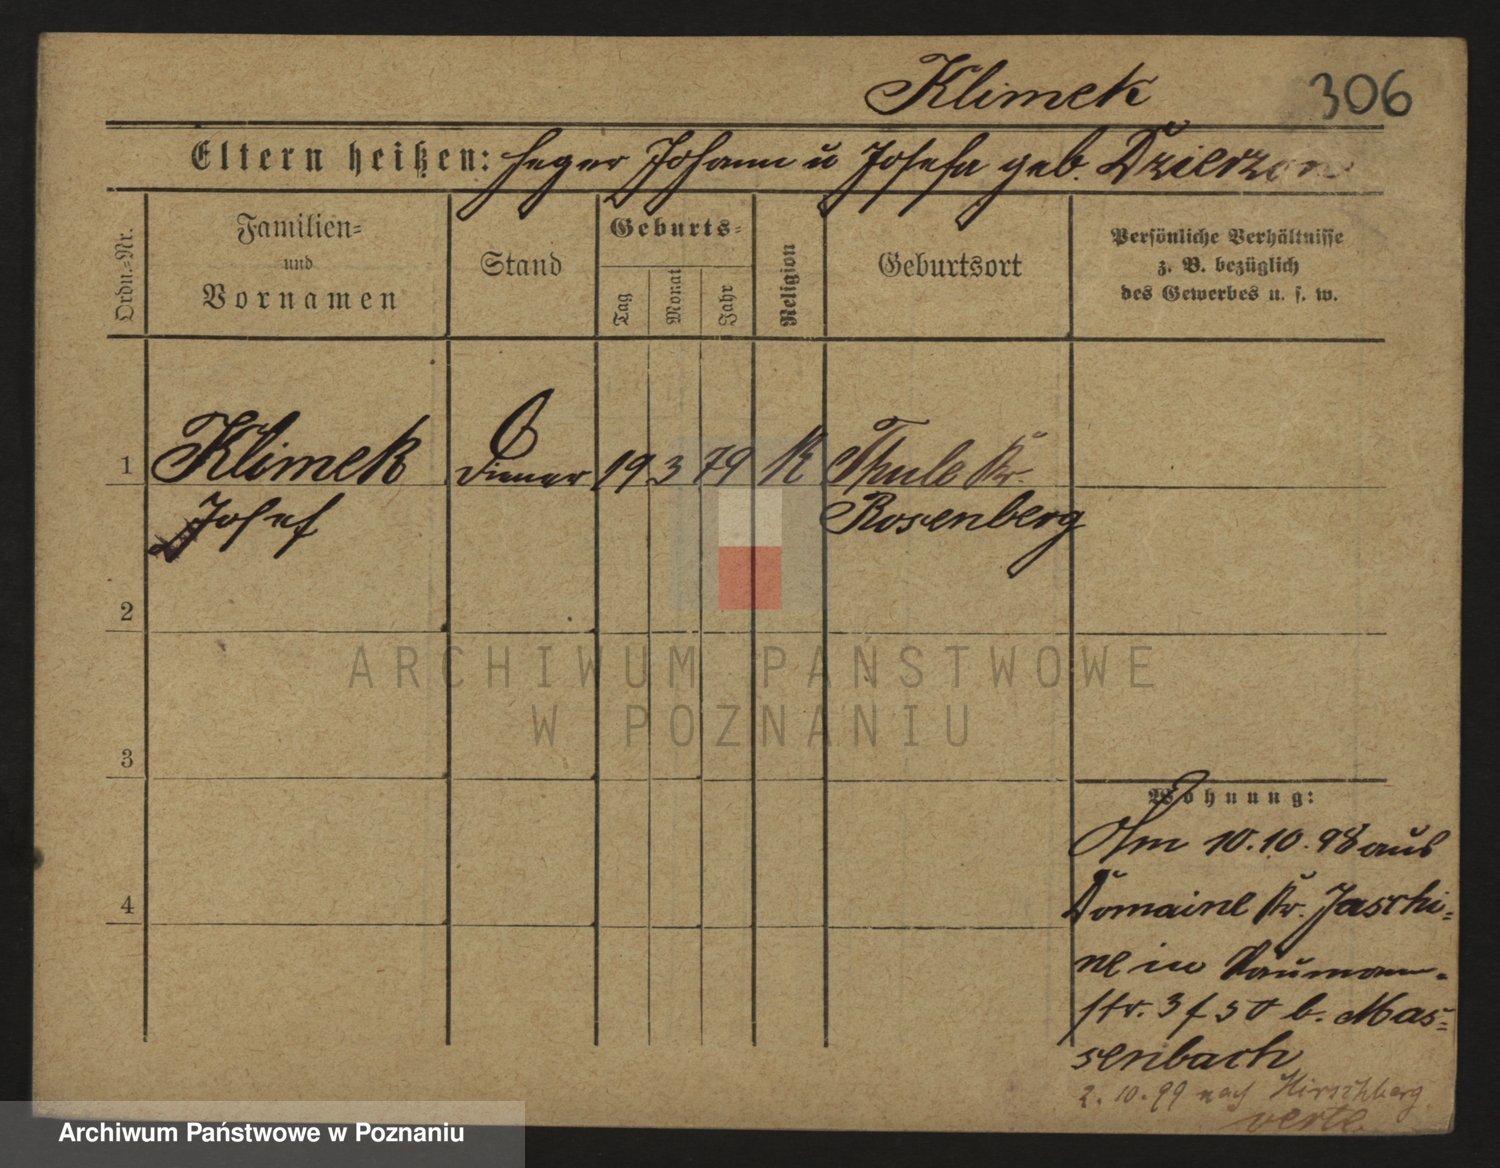 Klimek 306
Eltern heißen: Heger Johann u Josefa geb. Dzierzon
Ordn.-Nr.
Familien-
und
Vornamen
Stand
Geburts-
Tag
Monat
Jahr
Religion
Geburtsort
Persönliche Verhältnisse
z. B. bezüglich
des Gewerbes u. s. w.
1 Klimek Diener 19 3 79 K Thule Kr.
Josef Rosenberg
2
3
4
Wohnung:
Am 10.10.98 aus
Domaine Kr. Jaschi-
ne in Naumann-
str. 3 b. Mas-
senbach
2.10.99 nach Hirschberg
ARCHIWUM PAŃSTWOWE
W POZNANIU
Archiwum Państwowe w Poznaniu